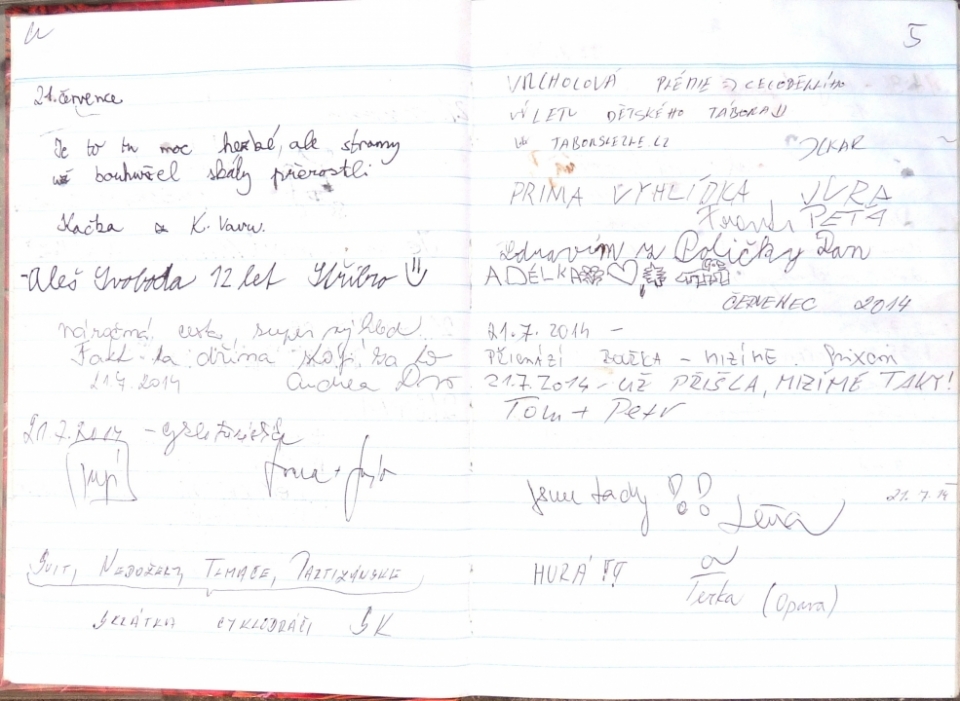 21. července
Je to tu moc hezké, ale stromy
bouhužel skály přerostli
Kačka a K. Vavr.
Aleš Svoboda 12 let Stříbro
náročná cesta, super výhled!
Fakt ta dřina stojí za to
21.7.2014 Andrea
21.7.2014 -
Jupí
SVIT, NEDOŽERY, TLMAČE, PARTIZÁNSKE
SKRÁTKA CYKLODRÁČI SK
5
VRCHOLOVÁ PRÉMIE CELODENNÍHO
VÝLETU DĚTSKÉHO TÁBORA!!
JLKAR
PRIMA VYHLÍDKA JURA
Franta PEŤA
Zdravím z Poličky Dan
ADÉLKA
ČERVENEC 2014
21.7.2014 -
PŘICHÁZÍ BOUŘKA - MIZÍME
21.7.2014 - UŽ PŘIŠLA, MIZÍME TAKY!
Tom + Petr
Jsme tady !! 21.7.14
Léňa
HURÁ !! a
Terka (Opava)